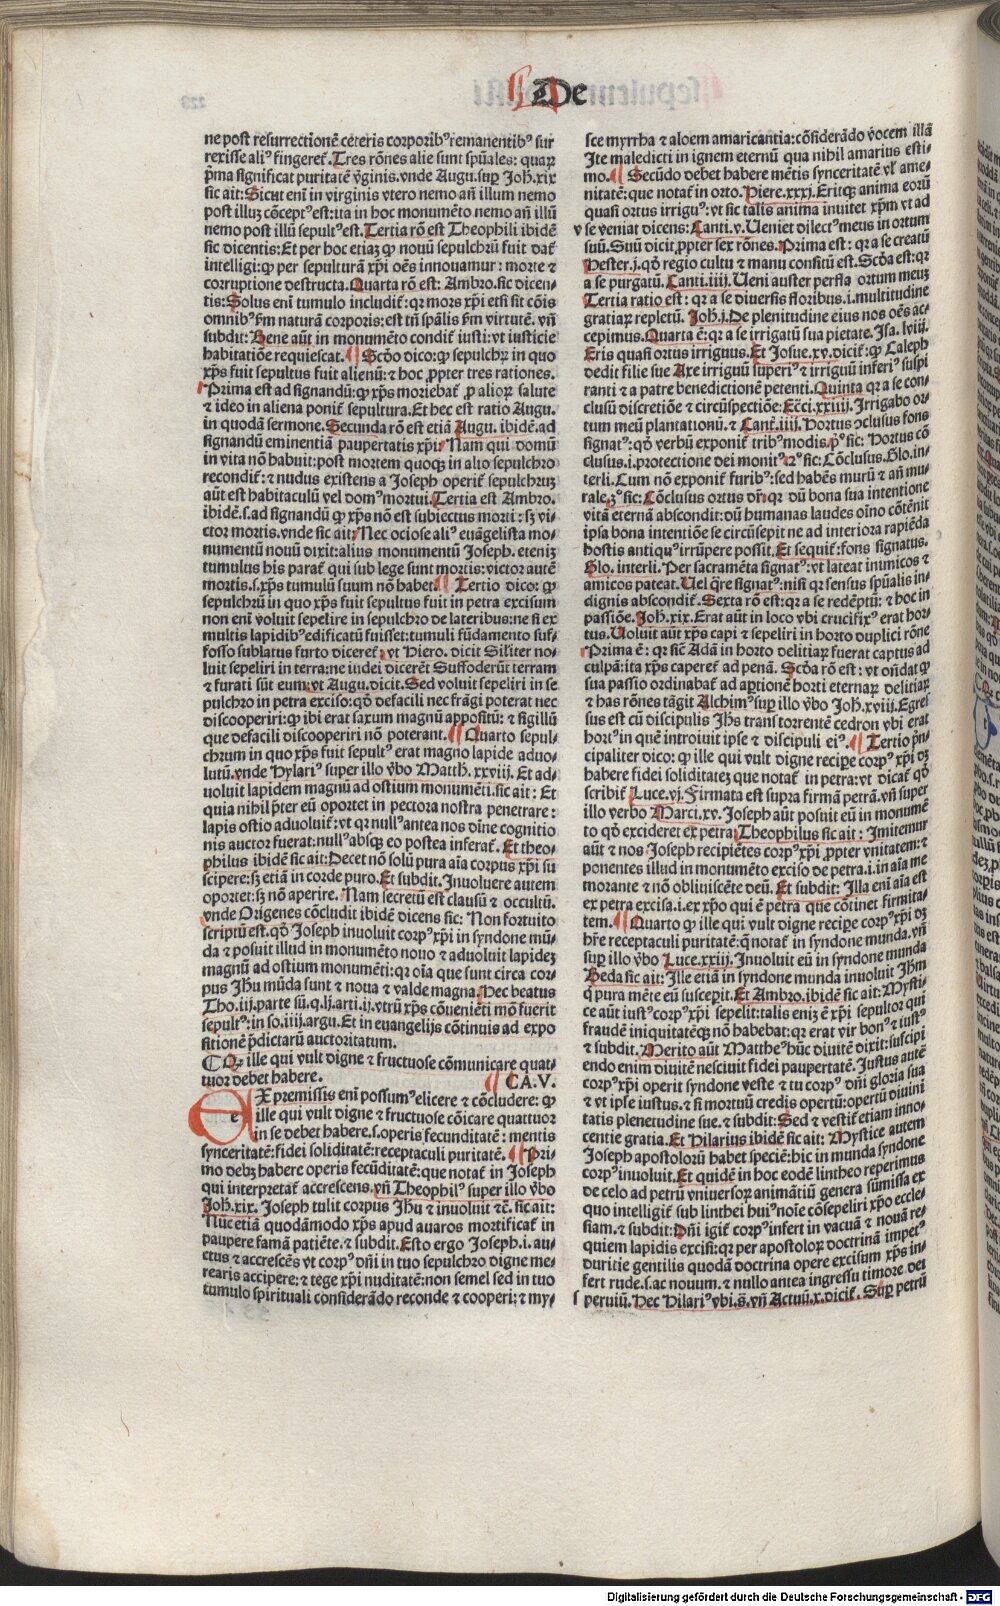 De
ne post resurrectionē ceteris corporibꝰ remanentibꝰ sur
rexisse aliꝰ fingeret̄. Tres rōnes alie sunt spūales: quaꝝ
p̄ma significat puritatē v̄ginis. vnde Augu. suꝑ Joh̄. xix
sic ait: Sicut enī in virginis vtero nemo añ illum nemo
post illuꝫ cōceptꝰ est: ita in hoc monumēto nemo añ illū
nemo post illū sepultꝰ est. Tertia rō est Theophili ibidē
sic dicentis: Et per hoc etiaꝫ ꝙ nouū sepulchrū fuit dat̄
intelligi: ꝙ per sepulturā xp̄i oēs innouamur: morte ⁊
corruptione destructa. Quarta rō est: Ambro. sic dicen-
tis: Solus enī tumulo includit̄: qꝛ mors xp̄i etsi sit cōis
omnibꝰ ẜm naturā corporis: est tñ spālis ẜm virtutē. vñ
subdit: Bene aūt in monumēto condit̄ iusti: vt iusticie
habitatiōe requiescat. Scd̄o dico: ꝙ sepulchꝝ in quo
xp̄s fuit sepultus fuit alienū: ⁊ hoc ꝓpter tres rationes.
Prima est ad signandū: ꝙ xp̄s moriebat̄ ꝓ alioꝝ salute
⁊ ideo in aliena ponit̄ sepultura. Et hec est ratio Augu.
in quodā sermone. Secunda rō est etiā Augu. ibidē. ad
signandū eminentiā paupertatis xp̄i: Nam qui domū
in vita nō habuit: post mortem quoqꝫ in alio sepulchro
recondit̄: ⁊ nudus existens a Joseph operit̄ sepulchruꝫ
aūt est habitaculū vel domꝰ mortui. Tertia est Ambro.
ibidē. s. ad signandū ꝙ xp̄s nō est subiectus morti: sꝫ vi-
ctor mortis. vnde sic ait: Nec ociose aliꝰ euāgelista mo-
numentū nouū dixit: alius monumentū Joseph. eteniꝫ
tumulus his parat̄ qui sub lege sunt mortis: victor autē
mortis. s. xp̄s tumulū suum nō habet. Tertio dico: ꝙ
sepulchrū in quo xp̄s fuit sepultus fuit in petra excisum
non enī voluit sepelire in sepulchro de lateribus: ne si ex
multis lapidibꝰ edificatū fuisset: tumuli fūdamento suf-
fosso sublatus furto diceret̄: vt Hiero. dicit Silit̄er no-
luit sepeliri in terra: ne iudei dicerēt Suffoderūt terram
⁊ furati sūt eum: vt Augu. dicit. Sed voluit sepeliri in se
pulchro in petra exciso: qd̄ defacili nec frāgi poterat nec
discooperiri: ꝙ ibi erat saxum magnū appositū: ⁊ sigillū
que defacili discooperiri nō poterant. Quarto sepul-
chrum in quo xp̄s fuit sepultꝰ erat magno lapide aduo-
lutū. vnde Hylariꝰ super illo v̄bo Matth. xxviij. Et ad-
uoluit lapidem magnū ad ostium monumēti. sic ait: Et
quia nihil p̄ter eū oportet in pectora nostra penetrare:
lapis ostio aduoluit̄: vt qꝛ nullꝰ antea nos diīne cognitio
nis auctor fuerat: nullꝰ absqꝫ eo postea inferat̄. Et theo-
philus ibidē sic ait: Decet nō solū pura aīa corpus xp̄i su
scipere: sꝫ etiā in corde puro. Et subdit. Inuoluere autem
oportet: sꝫ nō aperire. Nam secretū est clausū ⁊ occultū.
vnde Origenes cōcludit ibidē dicens sic: Non fortuito
scriptū est. qd̄ Joseph inuoluit corpꝰ xp̄i in syndone mū-
da ⁊ posuit illud in monumēto nouo ⁊ aduoluit lapideꝫ
magnū ad ostium monumēti: qꝛ oīa que sunt circa cor-
pus Jh̄u mūda sunt ⁊ noua ⁊ valde magna. Hec beatus
Tho. iij. parte sū. q. lj. arti. ij. vtrū xp̄s cōueniēti mō fuerit
sepultꝰ: in so. iiij. argu. Et in euangelijs cōtinuis ad expo
sitionē p̄dictarū auctoritatum.
Qꝫ ille qui vult digne ⁊ fructuose cōmunicare quat-
tuor debet habere. CA. V.
EX premissis enī possumꝰ elicere ⁊ cōcludere: ꝙ
ille qui vult digne ⁊ fructuose cōicare quattuor
in se debet habere. s. operis fecunditatē: mentis
synceritatē: fidei soliditatē: receptaculi puritatē. Pri-
mo debꝫ habere operis fecūditatē: que notat̄ in Joseph
qui interpretat̄ accrescens. vñ Theophilꝰ super illo v̄bo
Joh̄. xix. Joseph tulit corpus Jh̄u ⁊ inuoluit ⁊c̄. sic ait:
Nūc etiā quodāmodo xp̄s apud auaros mortificat̄ in
paupere famā patiēte. ⁊ subdit. Esto ergo Joseph. i. au-
ctus ⁊ accrescēs vt corpꝰ dn̄i in tuo sepulchro digne me-
rearis accipere: ⁊ tege xp̄i nuditatē: non semel sed in tuo
tumulo spirituali considerādo reconde ⁊ cooperi: ⁊ my-
sce myrrha ⁊ aloem amaricantia: cōsiderādo vocem illā
Ite maledicti in ignem eternū qua nihil amarius esti-
mo. Secūdo debet habere mētis synceritatē vl̄ ame-
nitatē: que notat̄ in orto. Hiere. xxxj. Eritqꝫ anima eorū
quasi ortus irriguꝰ: vt sic talis anima inuitet xp̄m vt ad
se veniat dicens: Canti. v. Ueniet dilectꝰ meus in ortum
suū. Suū dicit ꝓpter sex rōnes. Prima est: qꝛ a se creatū
Hester. j. qd̄ regio cultu ⁊ manu consitū est. Scd̄a est: qꝛ
a se purgatū. Canti. iiij. Ueni auster perfla ortum meuꝫ
Tertia ratio est: qꝛ a se diuersis floribus. i. multitudine
gratiaꝝ repletū. Joh̄. j. De plenitudine eius nos oēs ac-
cepimus. Quarta ē: qꝛ a se irrigatū sua pietate. Isa. lviij.
Eris quasi ortus irriguus. Et Josue. xv. dicit̄: ꝙ Caleph
dedit filie sue Axe irriguū superiꝰ ⁊ irriguū inferiꝰ suspi
ranti ⁊ a patre benedictionē petenti. Quinta qꝛ a se con-
clusū discretiōe ⁊ circūspectiōe: Ecc̄i. xxiiij. Irrigabo or-
tum meū plantationū. ⁊ Cant̄. iiij. Hortus ↄclusus fons
signatꝰ: qd̄ verbū exponit̄ tribꝰ modis. pꝰ sic: Hortus cō
clusus. i. protectione dei monitꝰ. 2ꝰ sic: Cōclusus. Glo. in-
terli. Cum nō exponit̄ furibꝰ: sed habēs murū ⁊ añ mu-
rale. 3ꝰ sic: Cōclusus ortus dr̄: qꝛ dū bona sua intentione
vitā eternā abscondit: dū humanas laudes oīno cōtēnit
ipsa bona intentiōe se circūsepit ne ad interiora rapiēda
hostis antiquꝰ irrūpere possit. Et sequit̄: fons signatus.
Glo. interli. Per sacramēta signatꝰ: vt lateat inimicos ⁊
amicos pateat. Uel qr̄e signatꝰ: nisi qꝛ sensus spūalis in-
dignis abscondit̄. Sexta rō est: qꝛ a se redēptū: ⁊ hoc in
passiōe. Joh̄. xix. Erat aūt in loco vbi crucifixꝰ erat hor-
tus. Uoluit aūt xp̄s capi ⁊ sepeliri in horto duplici rōne
Prima ē: qꝛ sic̄ Adā in horto delitiaꝝ fuerat captus ad
culpā: ita xp̄s caperet̄ ad penā. Scd̄a rō est: vt ondat̄ ꝙ
sua passio ordinabat̄ ad aꝑtionē horti eternaꝝ delitiaꝝ
⁊ has rōnes tāgit Alchimꝰ suꝑ illo v̄bo Joh̄. xviij. Egres
sus est cū discipulis Jh̄s trans torrentē cedron vbi erat
hortꝰ in quē introiuit ipse ⁊ discipuli eiꝰ. Tertio p̄n-
cipaliter dico: ꝙ ille qui vult digne recipe corpꝰ xp̄i dꝫ
habere fidei soliditateꝫ que notat̄ in petra: vt dicat̄ qd̄
scribit̄ Luce. vj. Firmata est supra firmā petrā. vñ super
illo verbo Marci. xv. Joseph aūt posuit eū in monumē
to qd̄ excideret ex petra. Theophilus sic ait: Imitemur
aūt ⁊ nos Joseph recipiētes corpꝰ xp̄i ꝓpter vnitatem: ⁊
ponentes illud in monumēto exciso de petra. i. in aīa me
morante ⁊ nō obliuiscēte deū. Et subdit: Illa enī aīa est
ex petra excisa. i. ex xp̄o qui ē petra que cōtinet firmita-
tem. Quarto ꝙ ille qui vult digne recipe corpꝰ xp̄i dꝫ
hr̄e receptaculi puritatē: q̄ notat̄ in syndone munda. vñ
suꝑ illo v̄bo Luce. xxiij. Inuoluit eū in syndone munda
Beda sic ait: Ille etiā in syndone munda inuoluit Jh̄m
q̄ pura mēte eū suscepit. Et Ambro. ibidē sic ait: Mysti-
ce aūt iustꝰ corpꝰ xp̄i sepelit: talis eniꝫ ē xp̄i sepultor qui
fraudē iniquitatēqꝫ nō habebat: qꝛ erat vir bonꝰ ⁊ iustꝰ
⁊ subdit. Merito aūt Mattheꝰ hūc diuitē dixit: suscipi
endo enim diuitē nesciuit fidei paupertatē. Justus autē
corpꝰ xp̄i operit syndone veste ⁊ tu corpꝰ dn̄i gloria sua
⁊ vt ipse iustus. ⁊ si mortuū credis opertū: opertū diuini
tatis plenetudine sue. ⁊ subdit: Sed ⁊ vestit̄ etiam inno-
centie gratia. Et Hilarius ibidē sic ait: Mystice autem
Joseph apostolorū habet speciē: hic in munda syndone
corpꝰ inuoluit. Et quidē in hoc eodē lintheo reperimus
de celo ad petrū vniuersoꝝ animātiū genera sumissa ex
quo intelligit̄ sub linthei huiꝰ noīe cōsepeliri xp̄o eccle-
siam. ⁊ subdit: Dn̄i igit̄ corpꝰ infert in vacuā ⁊ nouā re-
quiem lapidis excisi: qꝛ per apostoloꝝ doctrinā impetꝰ
duritie gentilis quodā doctrina opere excisum xp̄s in-
fert rude. s. ac nouum. ⁊ nullo antea ingressu timore dei
peruiū. Hec Hilariꝰ vbi. s̄. vñ Actuū. x. dicit̄. Suꝑ petrū
Digitalisierung gefördert durch die Deutsche Forschungsgemeinschaft - DFG